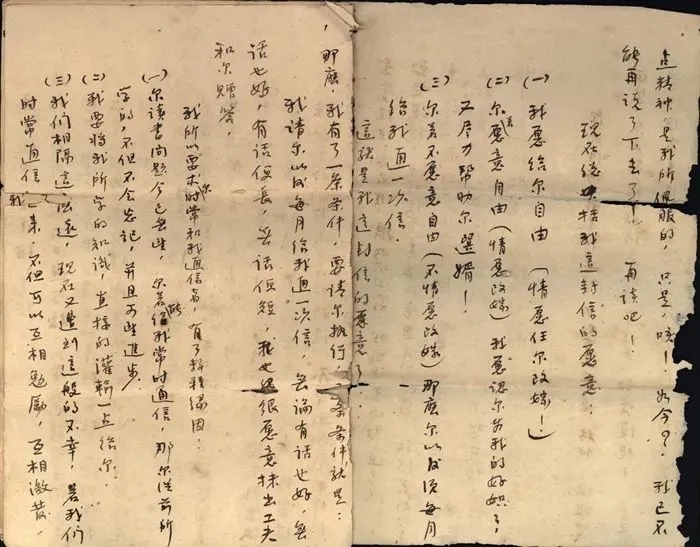 点精神，是我所佩服的，只是，唉！如今？我已不
能再说了下去了！ 再读吧！
现在总括我这封信的愿意：
(一) 我愿给尔自由（情愿任尔改嫁！）
(二) 尔若愿意自由（情愿改嫁）我愿认尔为我的好姐了
又尽力帮助尔选婿！
(三) 尔若不愿意自由（不情愿改嫁）那么尔以后须每月
给我通一次信。
这就是我这封信的愿意了。
那么，我有了一条条件，要请尔执行，条条件就是：
我请尔以后每月给我通一次信，无论有话也好，无
话也好，有话便长，无话便短，我也很愿意抹出工夫
和尔赠答。
我所以要求尔时常和我通信者，有了数种缘因：
(一) 尔读书问题今已无望，尔若能给我常时通信，那尔从前所
学的，不但不会忘记，并且可望进步。
(二) 我要将我所学的知识，直接的灌输一点给尔。
(三) 我们相隔这么远，现在又遭到这般的不幸，若我们
时常通信起来，不但可以互相勉励，互相激发，